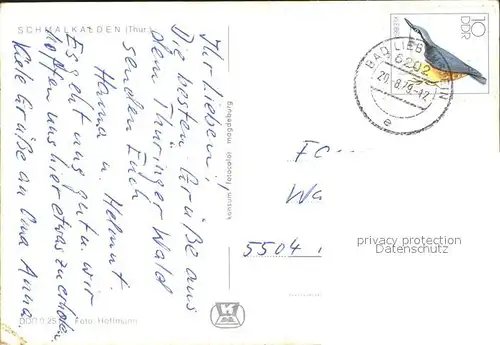 SCHMALKALDEN (Thur.)
Ihr Lieben!
Die besten Grüße aus
dem Thüringer Wald
senden Euch
Hanna u. Helmut.
Es geht uns gut u. wir
hoffen uns hier etwas zu erholen.
Viele Grüße an Oma Anna.
konsum fotocolor magdeburg
Foto: Hoffmann
KLEIBER
DDR
10
BAD LIEBENSTEIN
6202
20.8.79-12
e
Fa
Wa
5504
privacy protection
Datenschutz